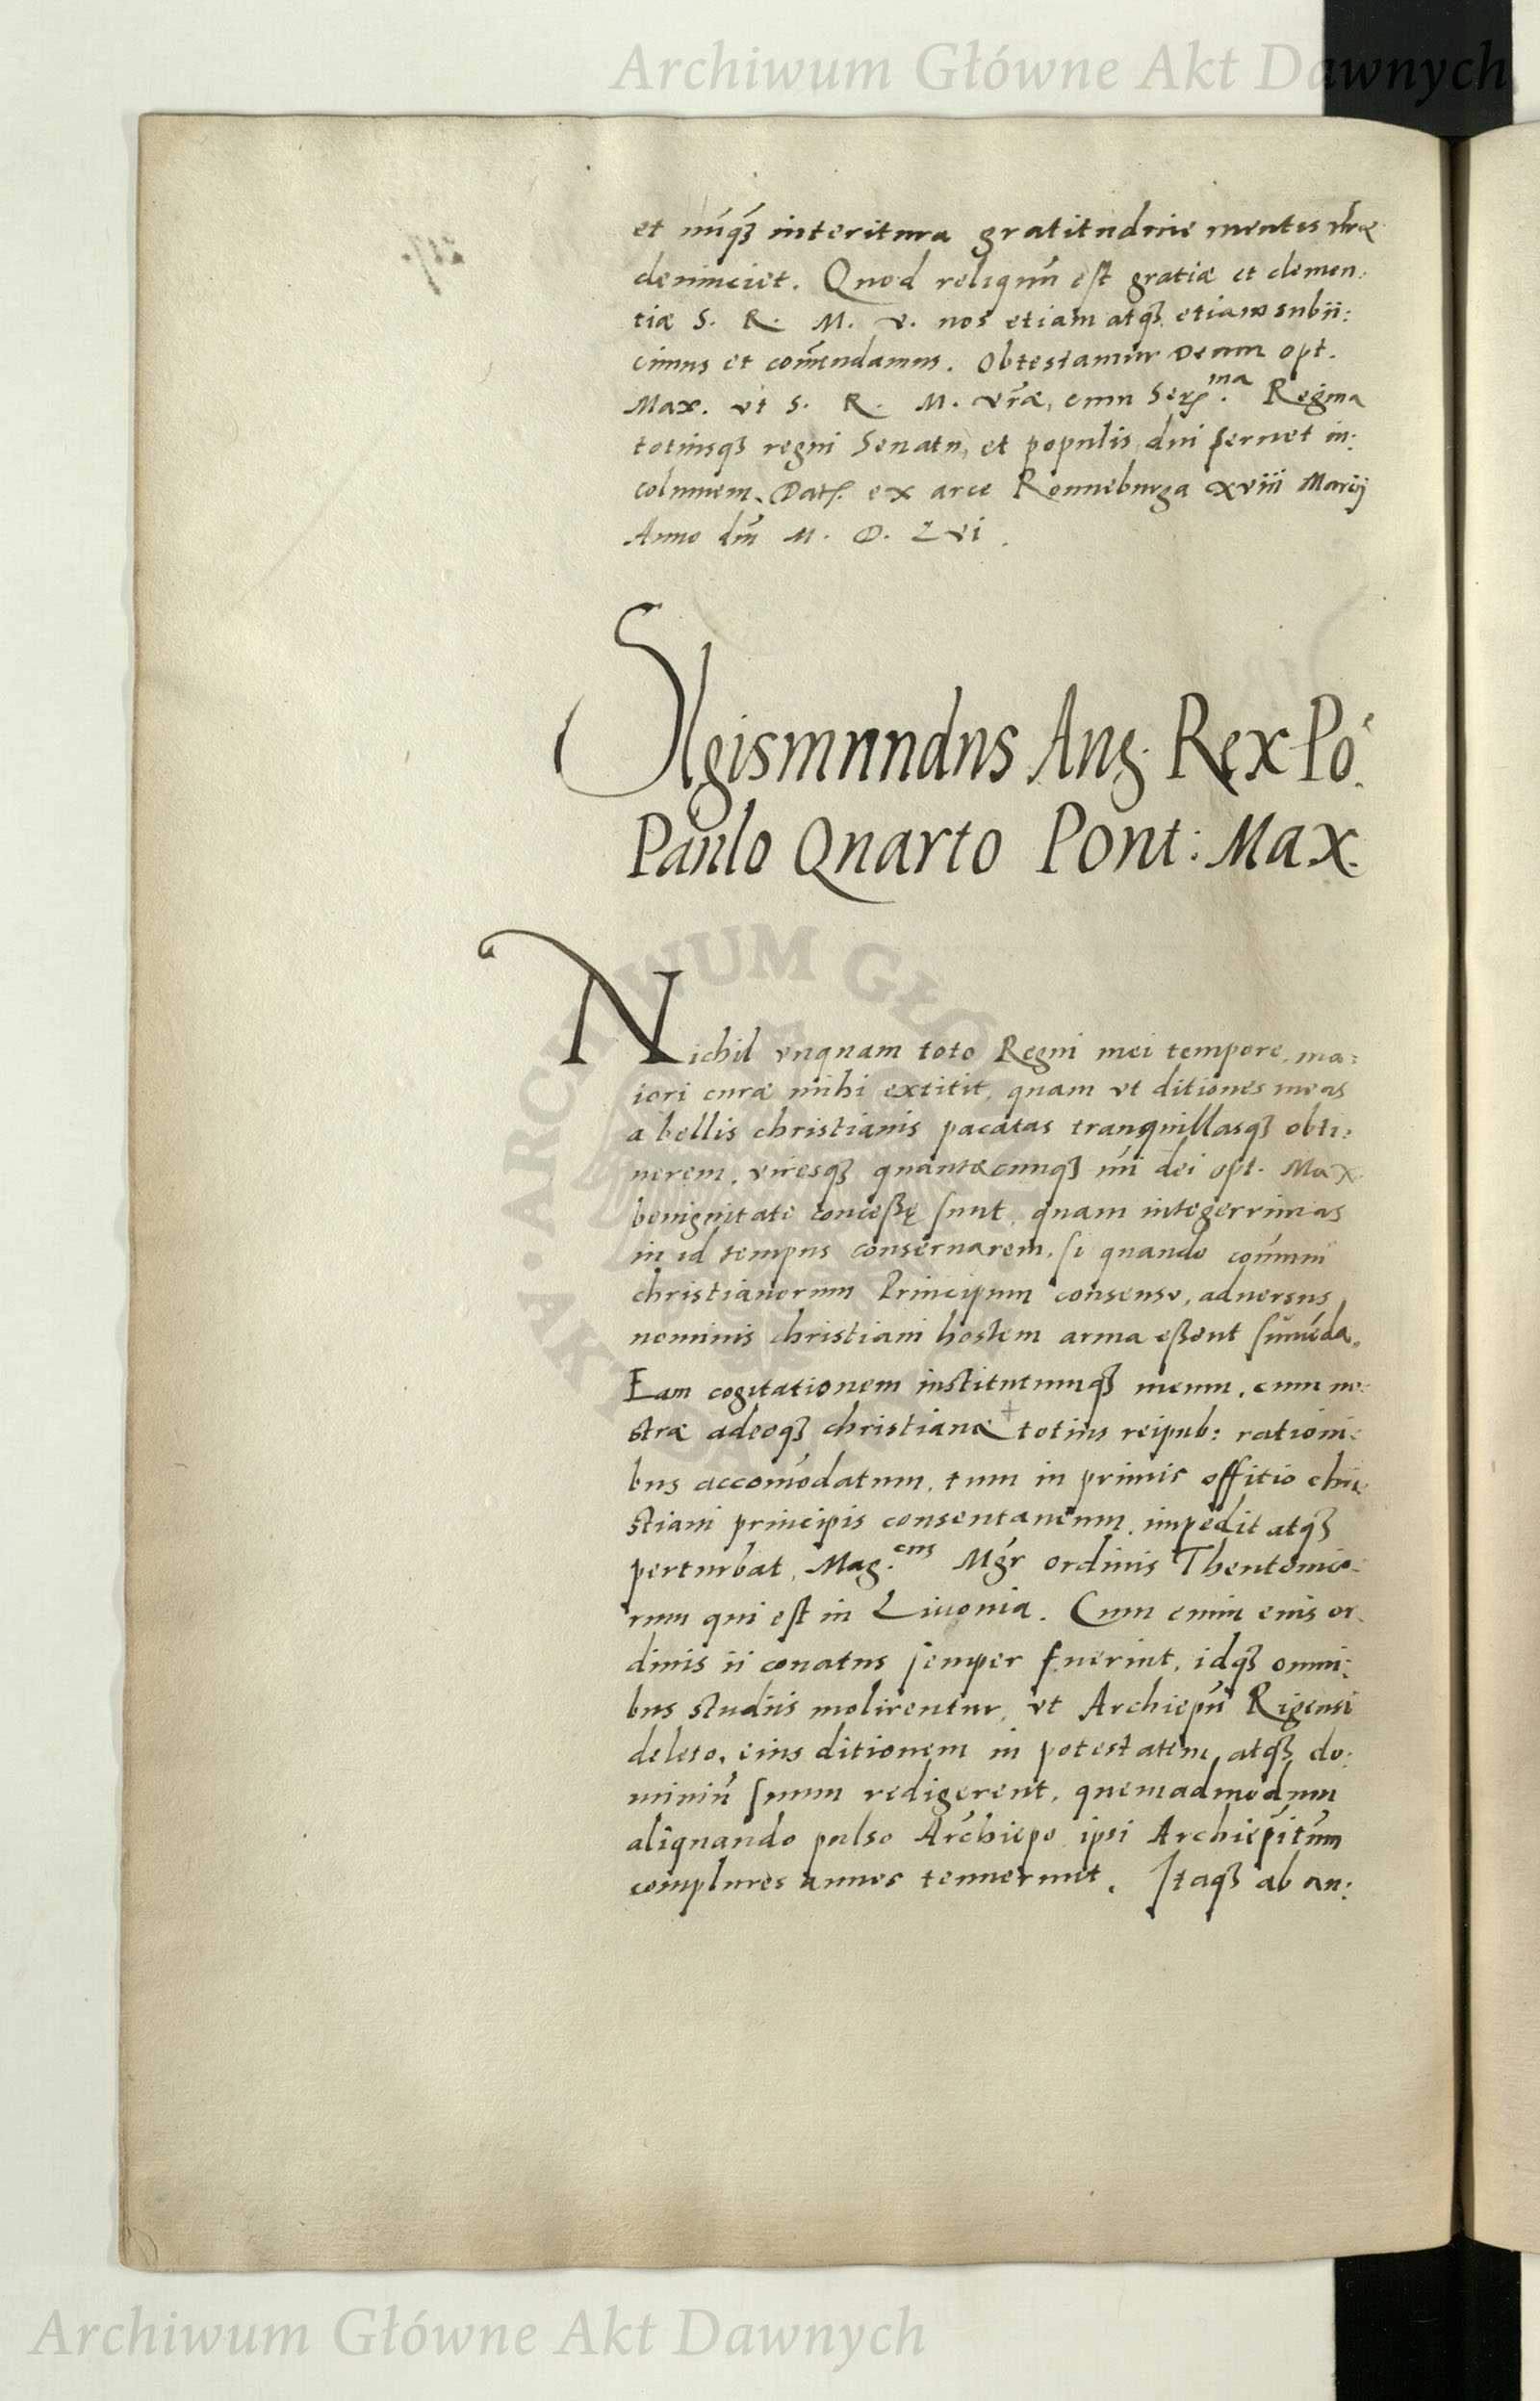 Archiwum Główne Akt Dawnych
et nūq̃ interitura gratitudine mentis vr̃æ
deninciet. Quod reliquũ est gratiæ et clemen:
tiæ S. R. M. v. nos etiam atq̃ etiam subii:
cimus et com̃endamus. Obtestamur Deum opt.
Max. vt S. R. M. vr̃æ, cum Ser. ma Regina
totiusq̃ regni Senatu, et populis diu seruet in:
columem. Dat. ex arce Ronneburga xviii Marcij
Anno dm̃ M. D. Lvi.
Sigismundus Aug. Rex Po.
Paulo Quarto Pont: Max.
Nichil vnquam toto Regni mei tempore, ma:
iori curæ mihi extitit, quam vt ditiones meas
a bellis christianis pacatas tranquillasq̃ obti:
nerem, viresq̃ quantæcunq̃ mi dei opt. Max.
benignitate conceßę sunt, quam integerrimas
in id tempus conseruarem, si quando com̃uni
christianorum Principum consensu, aduersus
nominis christiani hostem arma eßent sum̃ẽda.
Eam cogitationem institutumq̃ meum, cum no:
stræ adeoq̃ christianæ + totius reipub: rationi:
bus accom̃odatum, tum in primis offitio chri:
stiani principis consentaneum, impedit atq̃
perturbat, Mag. cus Mgr̃ ordinis Theutonico:
rum qui est in Liuonia. Cum enim eius or:
dinis ii conatus semper fuerint, idq̃ omni:
bus studiis molirentur, vt Archiepũ Rigensi
deleto, eius ditionem in potestatem, atq̃ do:
miniũ suum redigerent, quemadmodum
aliquando pulso Archiepo ipsi Archiepĩtum
complures annos tenuerunt. Itaq̃ ab an:
ARCHIWUM GŁÓWNE AKT DAWNYCH
Archiwum Główne Akt Dawnych